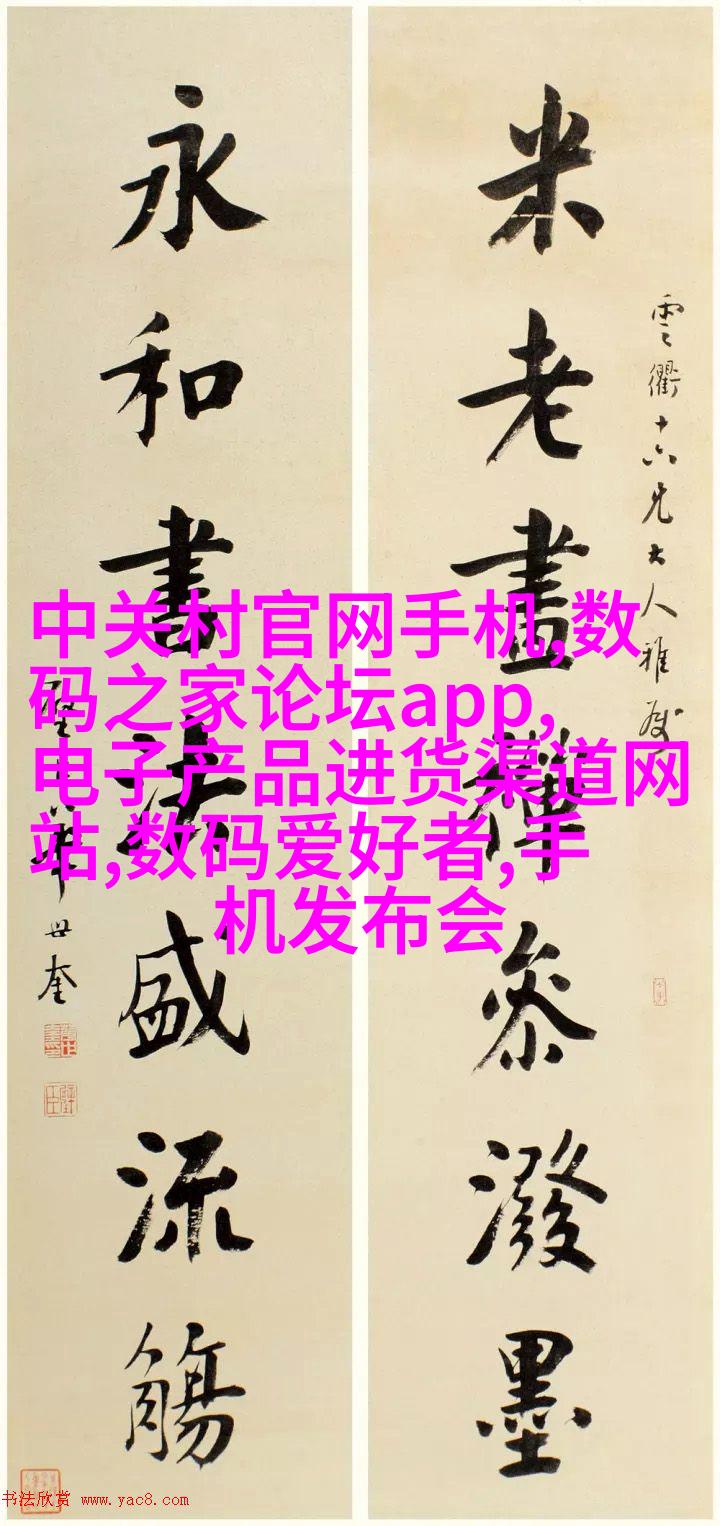 米老畫禪參潑墨
雲衢十六兄大人雅屬
永和書法盛流觴
世奎
中关村官网手机,数
码之家论坛app,
电子产品进货渠道网
站,数码爱好者,手
机发布会
书法欣赏 www.yac8.com